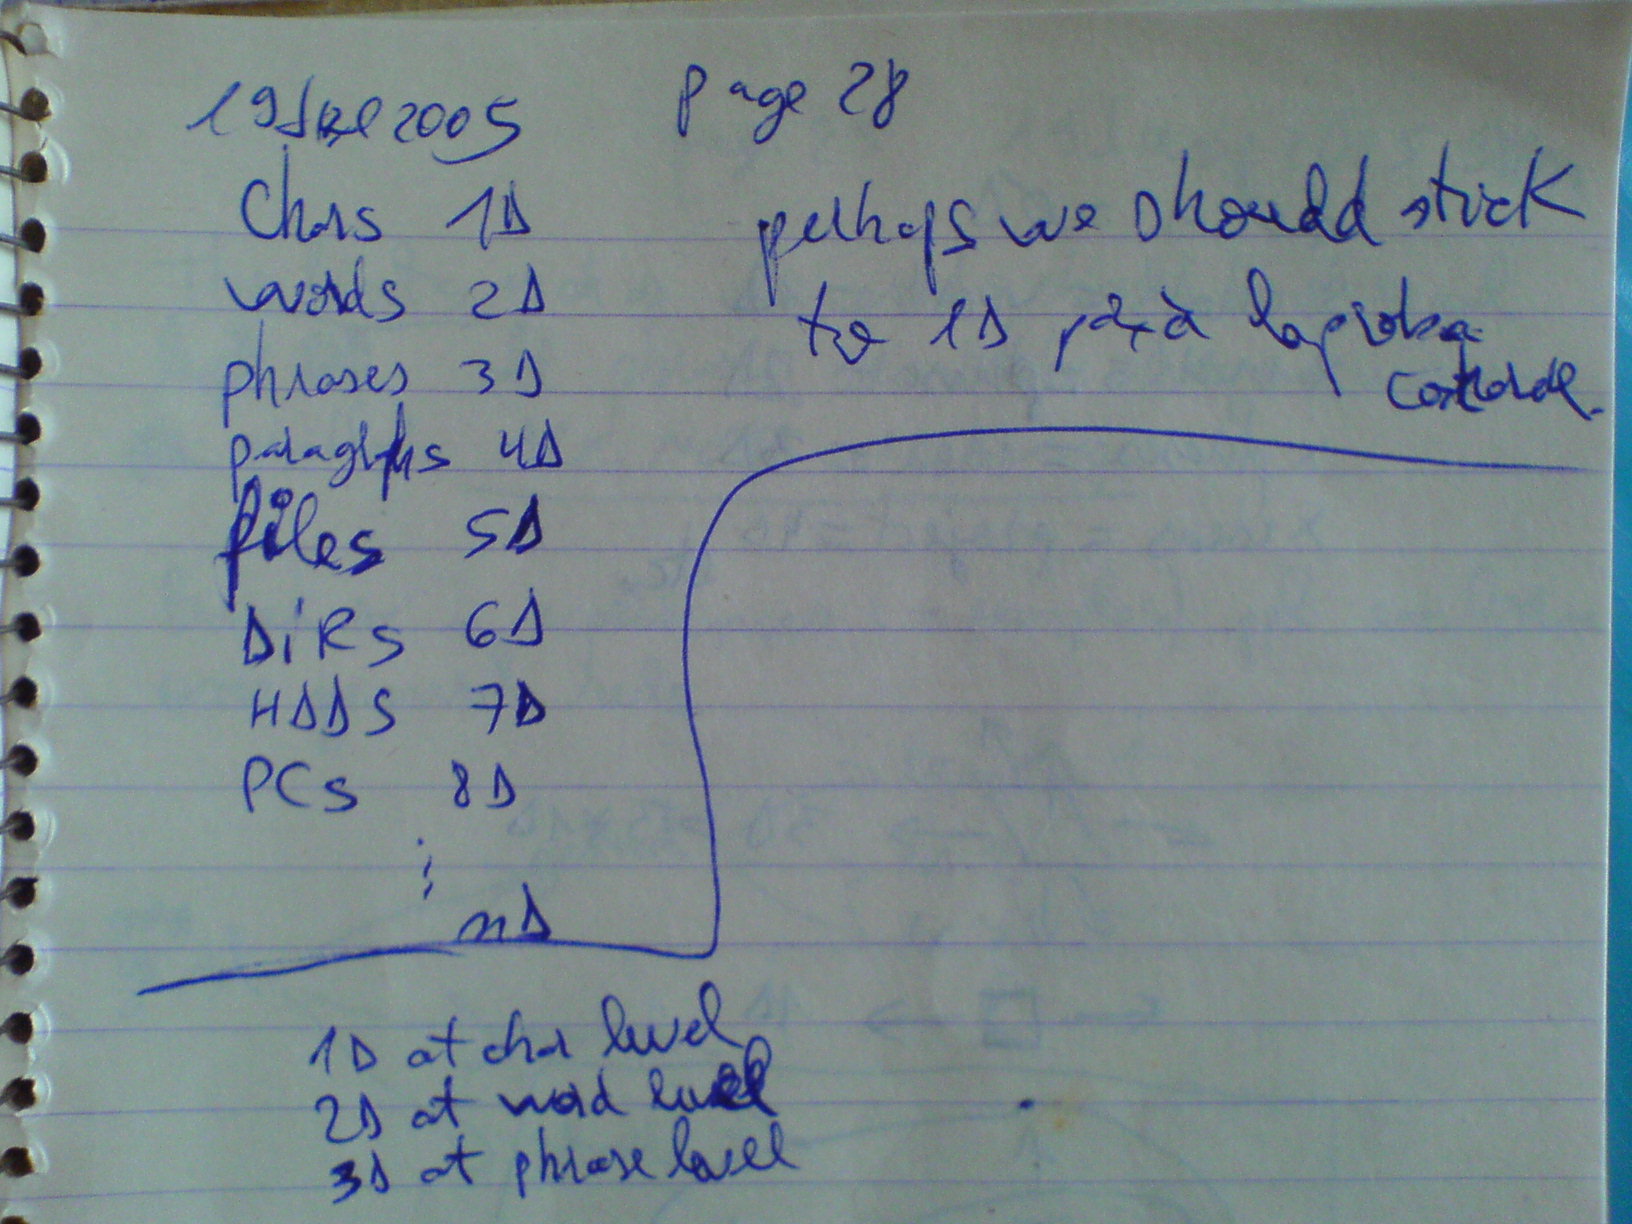 19 2005
page 28
chars 1D
words 2D
phrases 3D
paragrphs 4D
files 5D
DiRs 6D
HDDs 7D
PCs 8D
nD
perhaps we should stick
to 1D până la proba
contrarie.
1D at char level
2D at word level
3D at phrase level